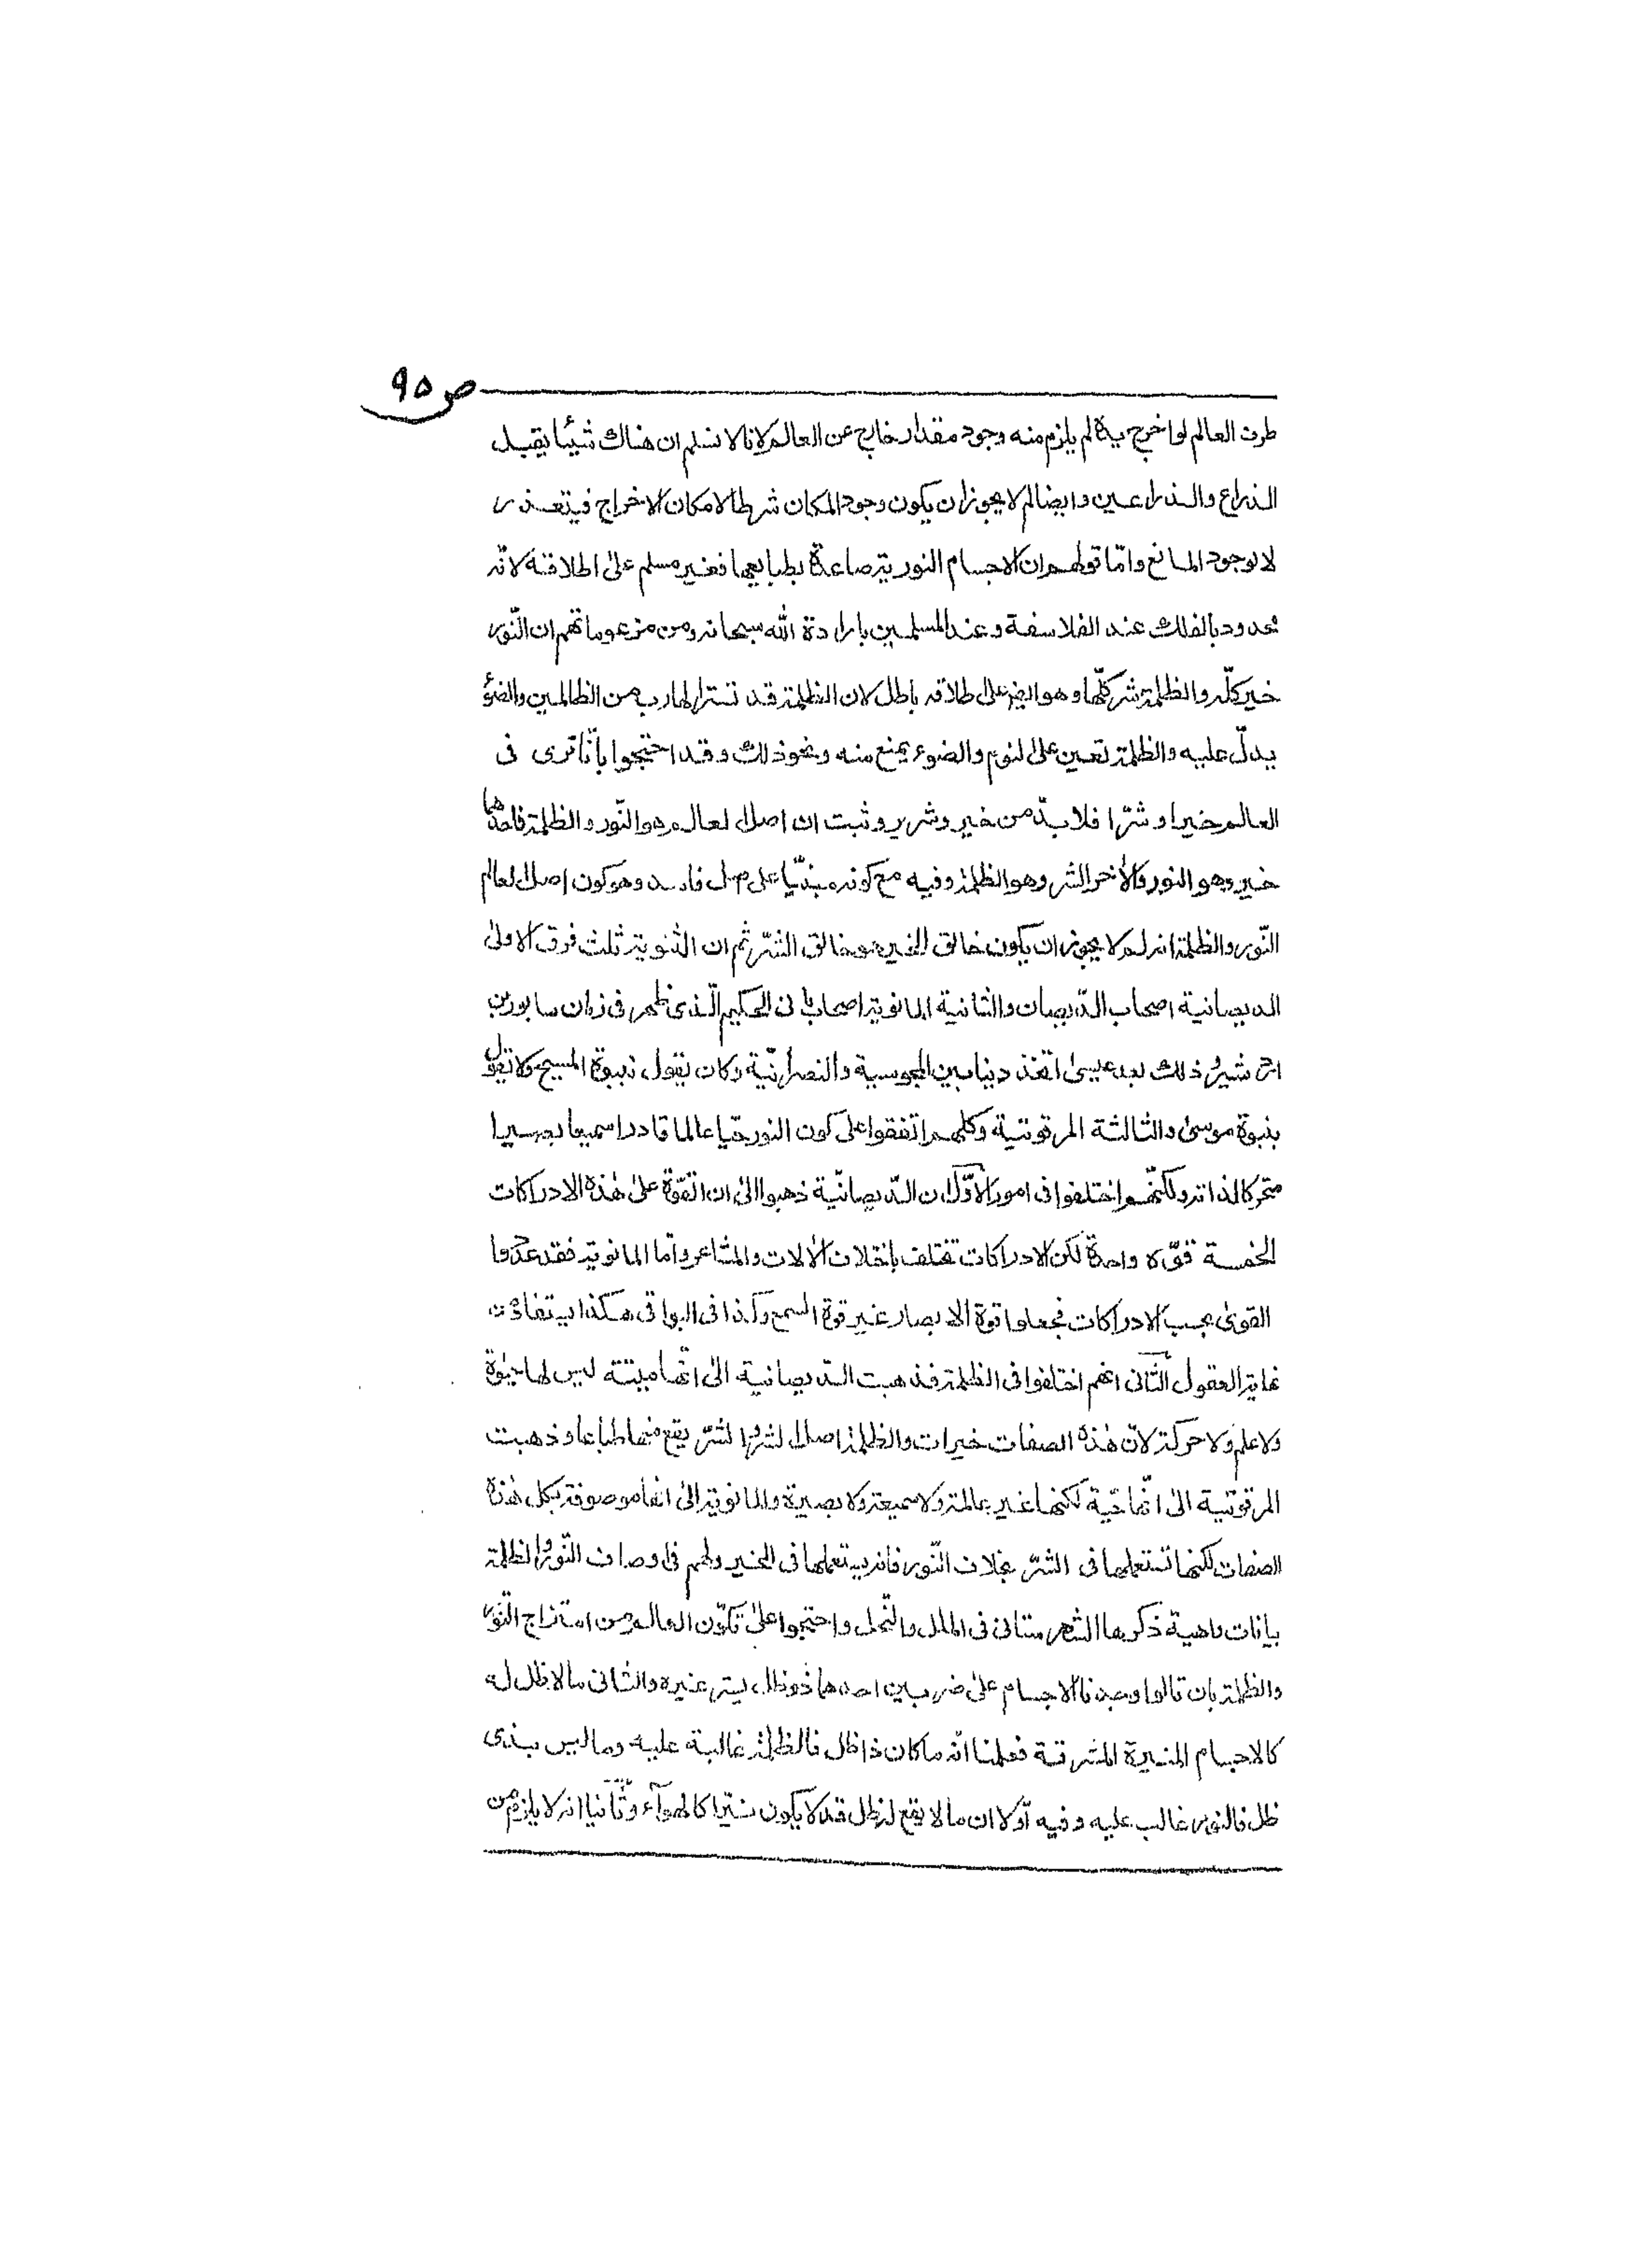 ص ٩٥
طرف العالم لو اخرج يده لم يلزم منه وجود مقدار خارج عن العالم لانا لا نسلم ان هناك شيئا يقبل
الذراع والذراعين وايضا لم لا يجوز ان يكون وجود المكان شرطا لامكان الاخراج فيتعذر
لا لوجود المانع وامّا قولهم ان الاجسام النورية صاعدة بطبايعها فغير مسلم على اطلاقه لانّه
محدود بالفلك عند الفلاسفة وعند المسلمين بارادة الله سبحانه ومن مزعوماتهم ان النّور
خير كلّه والظلمة شر كلّها وهو ايضا على اطلاقه باطل لان الظلمة قد تستر الهارب من الظالمين والضوء
يدلّ عليه والظلمة تعين على النوم والضوء يمنع منه ونحو ذلك وقد احتجوا بأنّا نرى فى
العالم خيرا وشرّا فلا بدّ من خير وشرير وثبت ان اصل العالم هو النّور والظلمة فاحدهما
خير وهو النور والاٰخر الشر وهو الظلمة وفيه مع كونه مبنيّا على اصل فاسد وهو كون اصل العالم
النّور والظلمة انه لم لا يجوز ان يكون خالق الخير هو خالق الشّر ثم ان الثنوية ثلث فرق الاولى
الديصانية اصحاب الدّيصان والثانية المانوية اصحاب مانى الحكيم الّذى ظهر فى زمان سابور بن
اردشير وذلك بعد عيسى اتخذ دينا بين المجوسية والنصرانيّة وكان يقول نبوة المسيح ولا يقول
بنبوة موسى والثالثة المرقونية وكلهم اتفقوا على كون النور حيّا عالما قادرا سميعا بصيرا
متحركا لذاته ولكنّهم اختلفوا فى امور الاوّل ان الدّيصانيّة ذهبوا الى ان القوّة على هٰذه الادراكات
الخمسة قوّة واحدة لكن الادراكات تختلف باختلاف الاٰلات والمشاعر وامّا المانوية فقد عدّدوا
القوى بحسب الادراكات فجعلوا قوة الابصار غير قوة السمع وكذا فى البواقى هكذا يتفاوت
غاية العقول الثّانى انهم اختلفوا فى الظلمة فذهبت الدّيصانية الى انّها ميتة ليس لها حيوة
ولا علم ولا حركة لانّ هٰذه الصفات خيرات والظلمة اصل الشر والشرّ يقع منها طباعا وذهبت
المرقونية الى انّها حيّة لكنها غير عالمة ولا سميعة ولا بصيرة والمانوية الى انها موصوفة بكل هٰذه
الصفات لكنها تستعملها فى الشرّ بخلاف النّور فانه يستعملها فى الخير ولهم فى اوصاف النّور والظلمة
بيانات واهية ذكرها الشهرستانى فى الملل والنّحل واحتجوا على تكوّن العالم من امتزاج النّور
والظلمة بان قالوا وجدنا الاجسام على ضربين احدهما ذو ظل يستر غيره والثانى ما لا ظل له
كالاجسام المنيرة المشرقة فعلمنا انّه ما كان ذا ظل فالظلمة غالبة عليه وما ليس بذى
ظل فالنور غالب عليه وفيه اوّلا ان ما لا يقع له ظل قد لا يكون نيّرا كالهواٰء وثانيا انه لا يلزم من